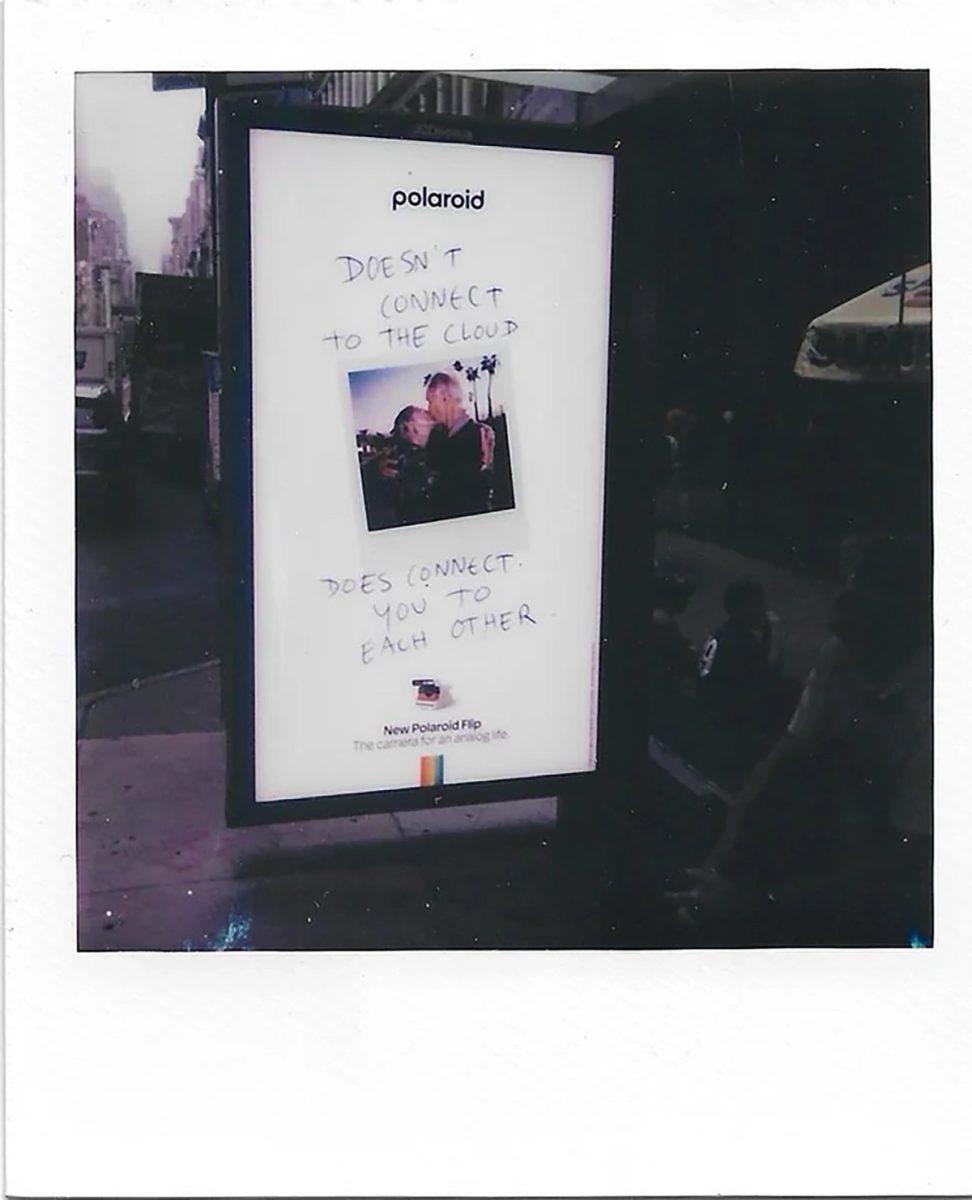 polaroid
DOESN'T
CONNECT
TO THE CLOUD
DOES CONNECT.
YOU TO
EACH OTHER.
New Polaroid Flip
The camera for an analog life